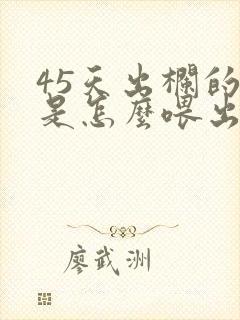 45天出欄的
是怎麼喂出
廖武洲